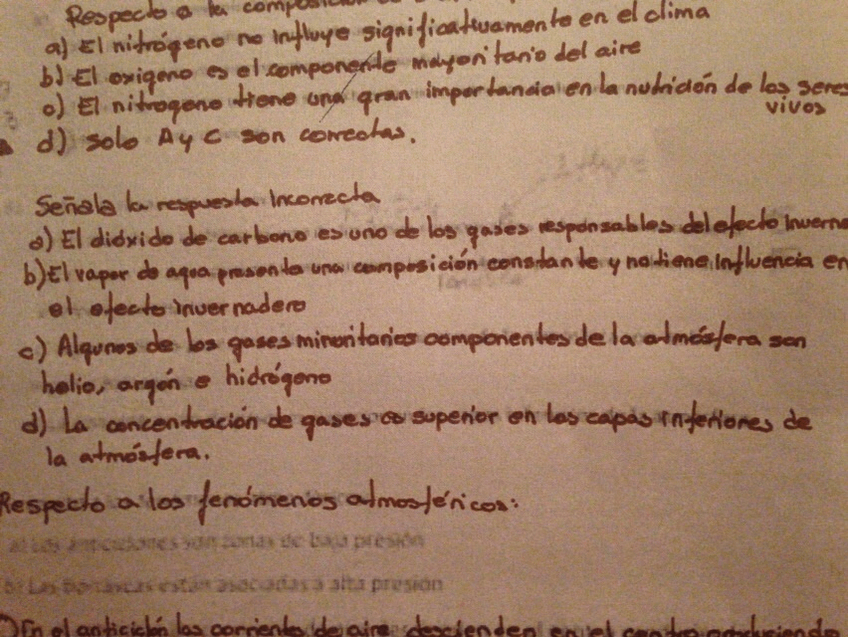 Respecto a la
a) El nitrógeno no influye significativamente en el clima
b) El oxigeno es el componente mayoritario del aire
c) El nitrogeno tiene una gran importancia en la nutrición de los seres
vivos
d) Solo A y C son correctas.
Señala la respuesta Incorrecta
a) El dióxido de carbono es uno de los gases responsables del efecto
b) El vapor de agua presenta una composición constante y no tiene influencia en
el efecto invernadero
c) Algunos de los gases minoritarios componentes de la atmósfera son
helio, argón e hidrógeno
d) La concentración de gases es superior en las capas inferiores de
la atmósfera.
Respecto a los fenómenos atmosféricos:
a) Los anticiclones son zonas de baja presión
b) Las borrascas están asociadas a alta presión
En el anticiclón las corrientes de aire descienden en el centro